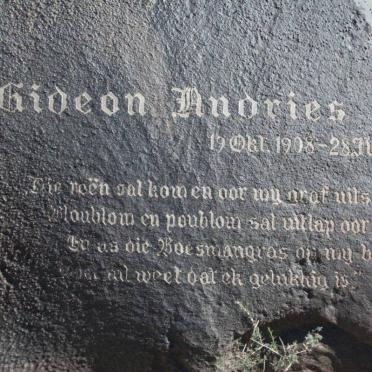 Gideon Andries
19 Okt. 1908-28.
Die reën sal kom en oor my graf uits
Bloublom en poublom sal uitlap oor
En as die Boesmangras op my b
weet dat ek gelukkig is."